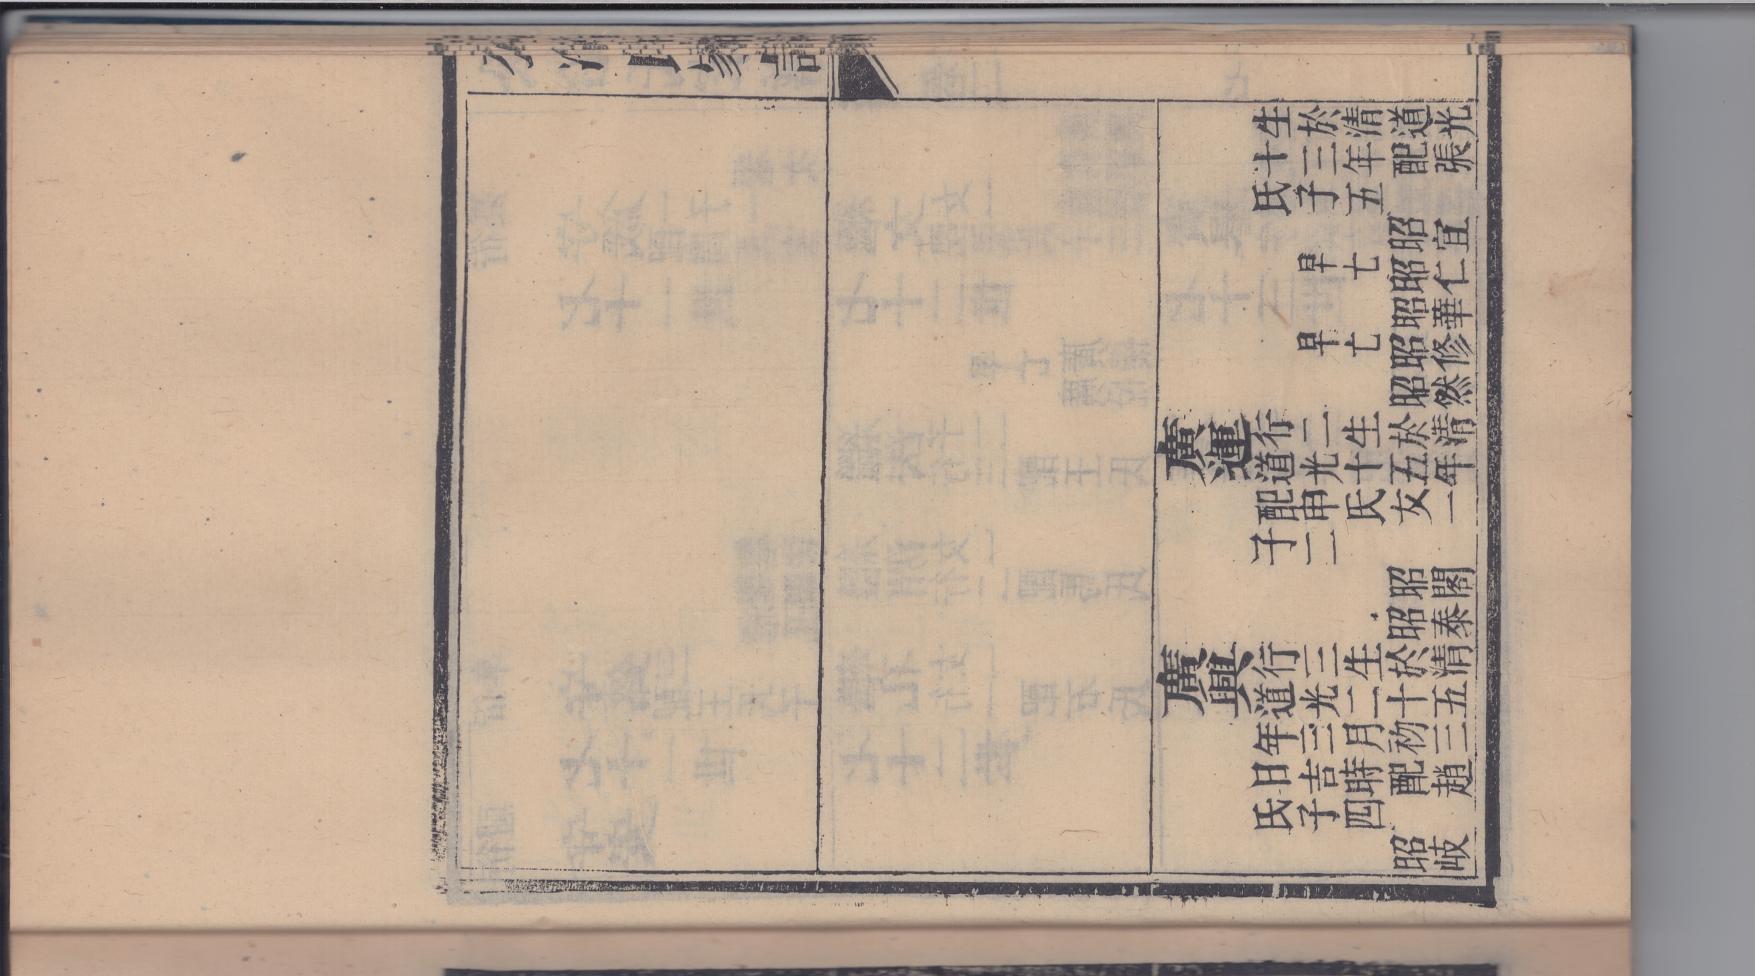 生於清道光
十三年配張
氏子五
昭宜
早亡 昭仁
昭華
早亡 昭修
昭然
廣運 行二生於清
道光十五年
配申氏女一
子二
昭閣
昭泰
廣興 行三生於清
道光二十五
年三月初三
日吉時配趙
氏子四
昭岐